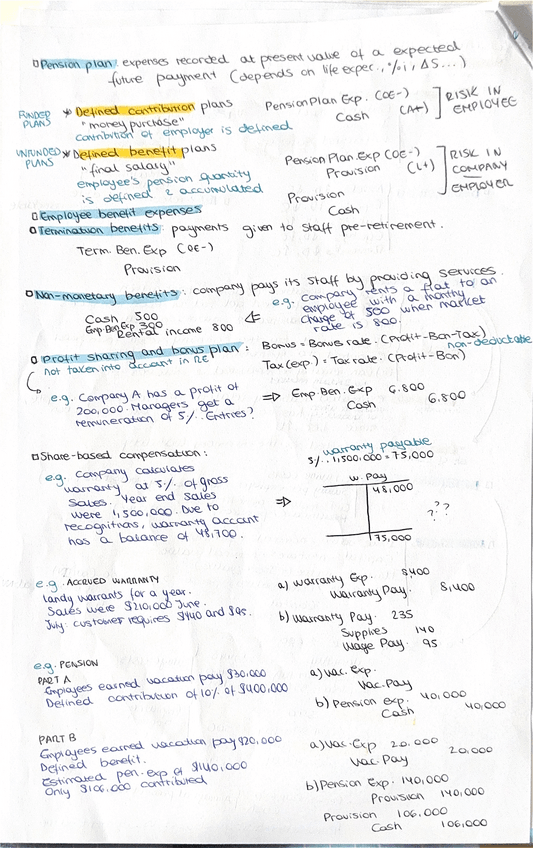 Pension plan: expenses recorded at present value of a expected
future payment (depends on life expec., %i, ΔS...)
FUNDED PLANS
* Defined contribution plans
"money purchase"
contribution of employer is defined
Pension Plan Exp. (OE-)
Cash (A+)
RISK IN EMPLOYEE
UNFUNDED PLANS
* Defined benefit plans
"final salary"
employee's pension quantity
is defined & accumulated
Pension Plan Exp (OE-)
Provision (L+)
Provision
Cash
RISK IN
COMPANY
EMPLOYER
Employee benefit expenses
Termination benefits: payments given to staff pre-retirement.
Term. Ben. Exp (OE-)
Provision
Non-monetary benefits: company pays its staff by providing services.
Cash 500
Emp. Ben Exp 300
Rental income 800
e.g. Company rents a flat to an
employee with a monthy
charge of 500 when market
rate is 800.
Profit sharing and bonus plan:
not taken into account in RE
Bonus = Bonus rate · (Profit-Bon-Tax)
non-deductable
Tax (exp) = Tax rate · (Profit-Bon)
e.g. Company A has a profit of
200,000. Managers get a
remuneration of 5%. Entries?
⇒ Emp. Ben. Exp 6.800
Cash 6.800
Share-based compensation:
e.g. Company calculates
warranty at 5% of gross
sales. Year end sales
were 1,500,000. Due to
recognitions, warranty account
has a balance of 48,700.
⇒
warranty payable
5% · 1,500,000 = 75,000
W. Pay
48,000
75,000
???
e.g. ACCRUED WARRANTY
landy warrants for a year.
Sales were $210,000 June.
July: customer requires $140 and $95.
a) Warranty Exp. 8,400
Warranty Pay. 8,400
b) Warranty Pay. 235
Supplies 140
Wage Pay. 95
e.g. PENSION
PART A
Employees earned vacation pay $30,000
Defined contribution of 10% of $400,000
a) Vac. Exp.
Vac. Pay
b) Pension exp. 40,000
Cash 40,000
PART B
Employees earned vacation pay $20,000
Defined benefit.
Estimated pen. exp of $140,000
Only $106,000 contributed
a) Vac. Exp 20.000
Vac. Pay 20,000
b) Pension Exp. 140,000
Provision 140,000
Provision 106,000
Cash 106,000